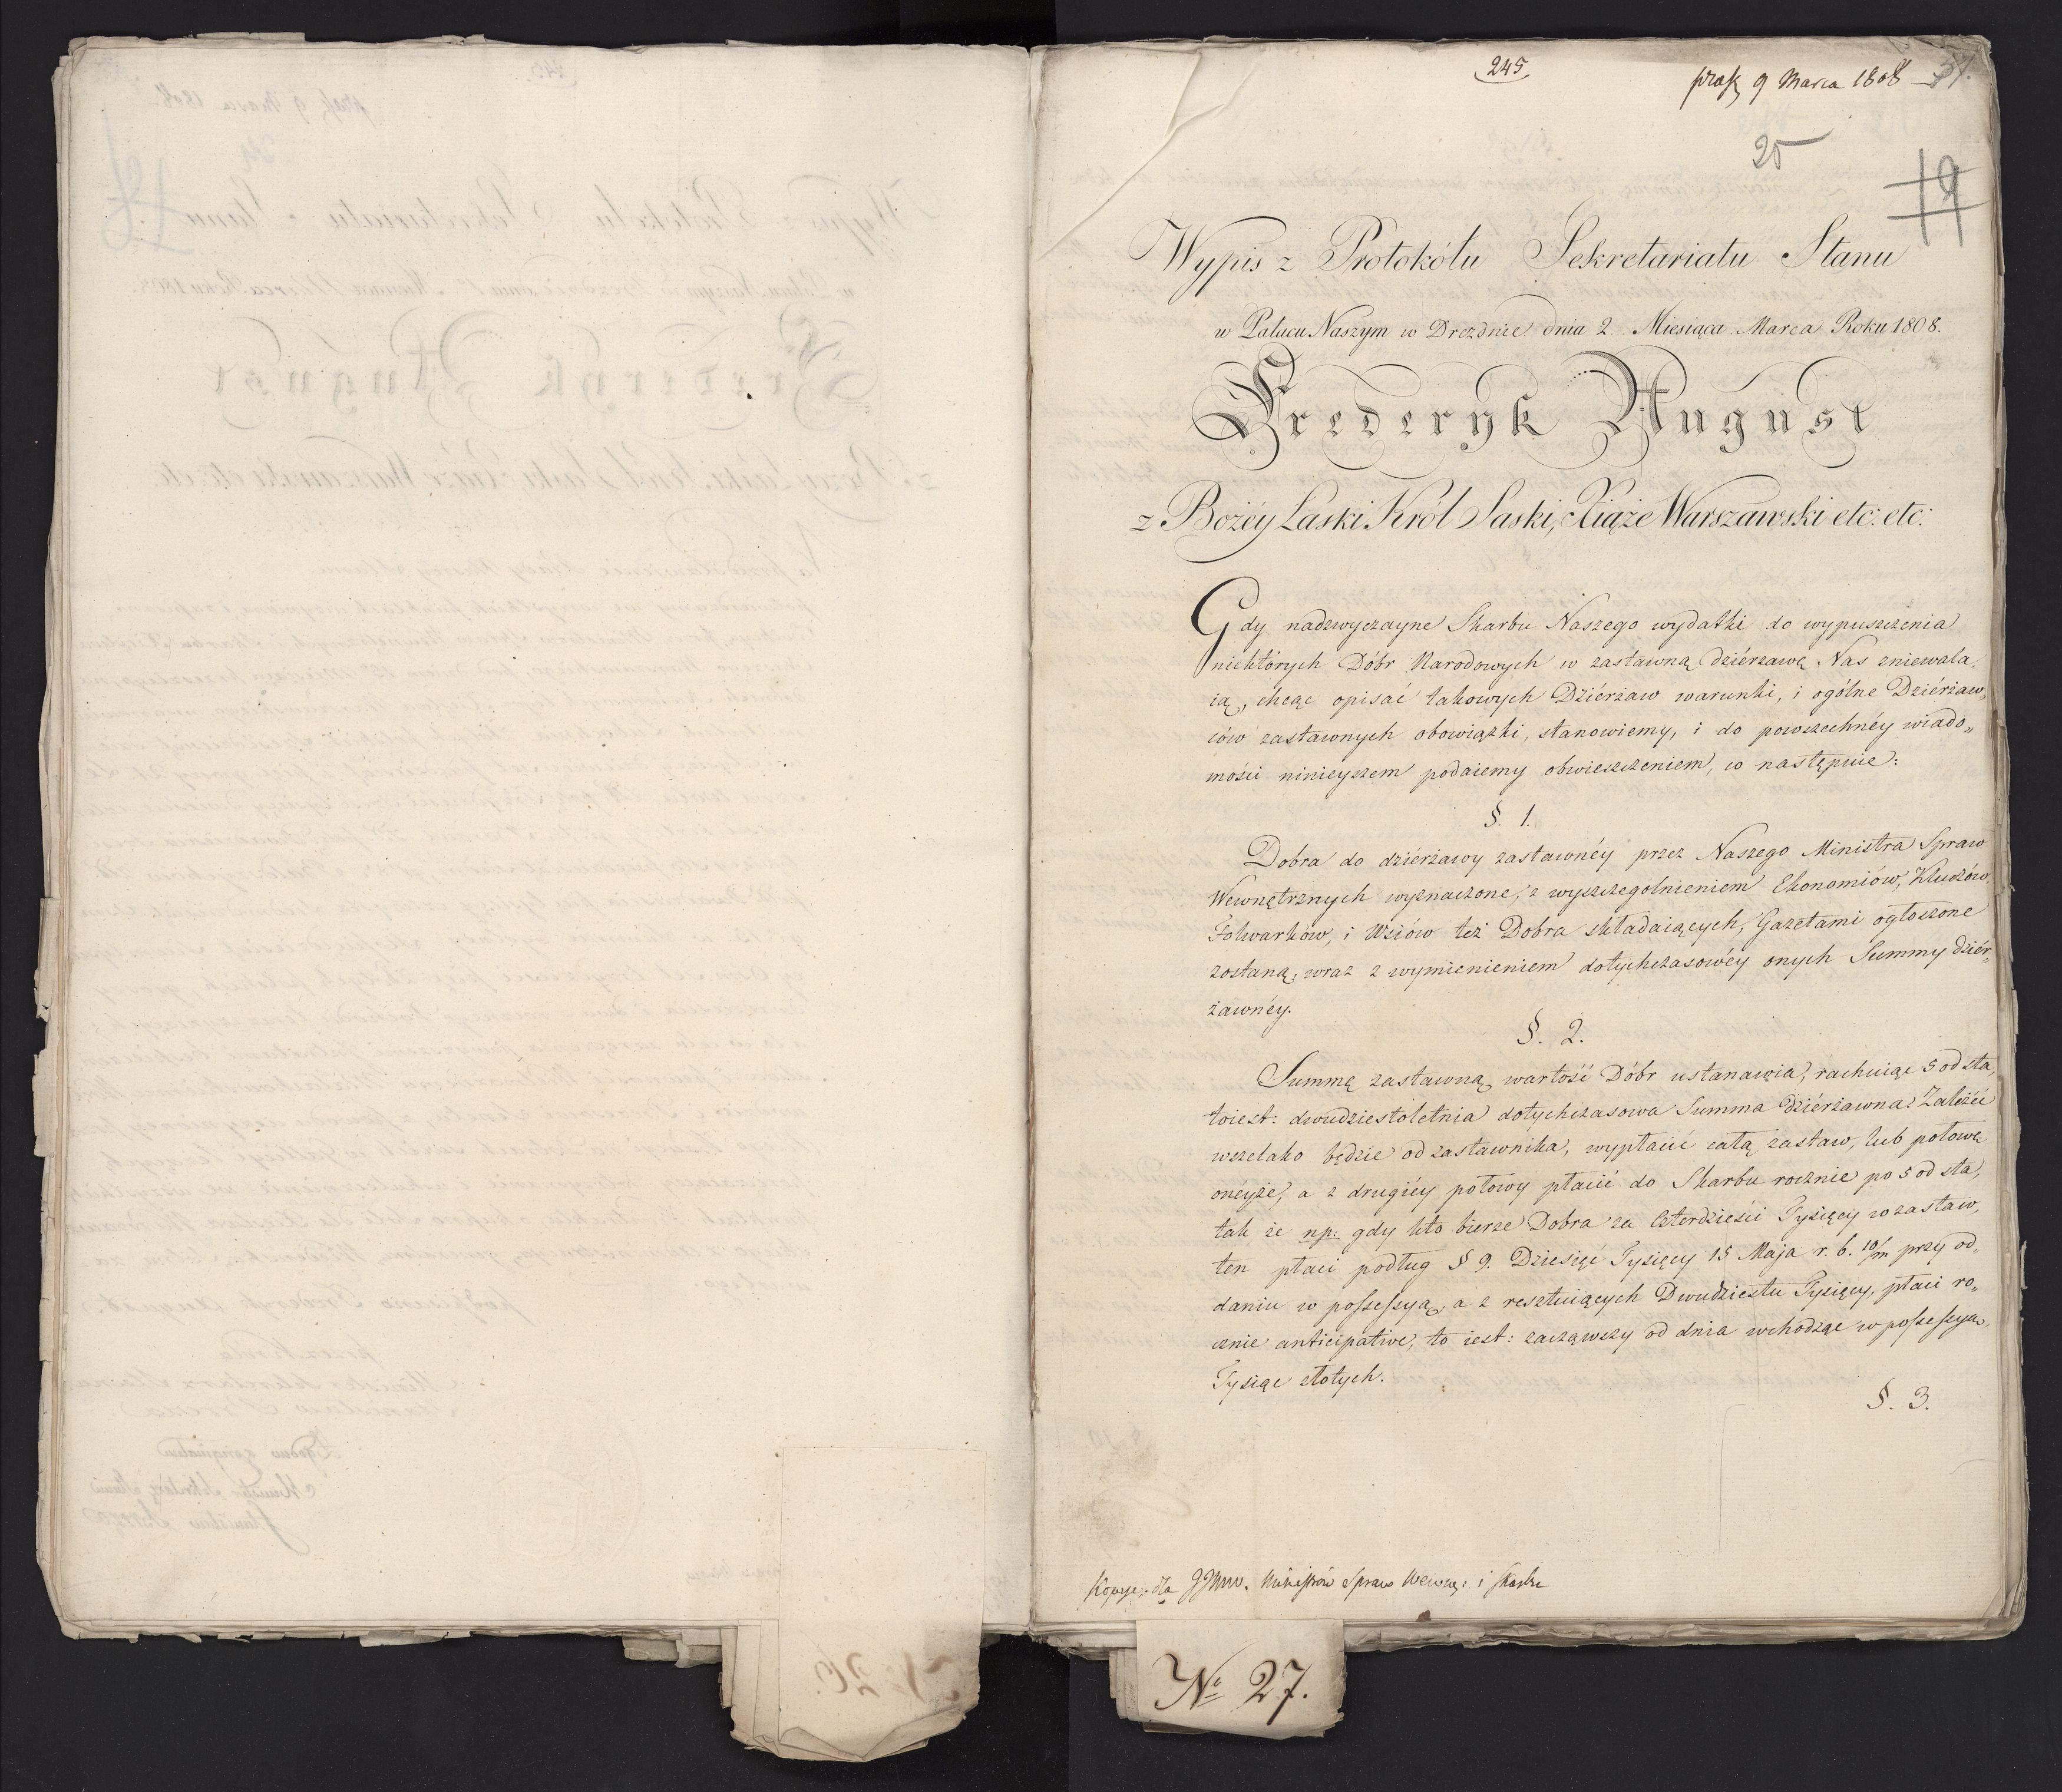 245.
praes 9 Marca 1808
25
19
Wypis z Protokółu Sekretariatu Stanu
w Pałacu Naszym w Dreznie dnia 2. Miesiąca Marca Roku 1808.
Frederyk August
z Bożéy Łaski Król Saski, Xiąże Warszawski etc: etc:
Gdy nadzwyczayne Skarbu Naszego wydatki do wypuszczenia
niektórych Dóbr Narodowych w zastawną dziérzawę Nas zniewala„
ią, chcąc opisać takowych Dziérżaw warunki, i ogólne Dziérżaw„
ców zastawnych obowiązki, stanowiemy, i do powszechnéy wiado„
mości ninieyszem podaiemy obwieszczeniem, co następuie:
§. 1.
Dobra do dziérżawy zastawnéy przez Naszego Ministra Spraw
Wewnętrznych wyznaczone, z wyszczegolnieniem Ekonomiów, Kluczów,
Folwarków, i Wsiów też Dobra składaiących, Gazetami ogłoszone
zostaną, wraz z wymienieniem dotychczasowéy onych Summy dziér„
żawnéy.
§. 2.
Summę zastawną wartość Dóbr ustanawia, rachuiąc 5 od sta,
toiest: dwudziestoletnia dotychczasowa Summa dziérżawna. Zależéć
wszelako będzie od zastawnika, wypłacić całą zastaw, lub połowę
onéyże, a z drugiéy połowy płacić do Skarbu rocznie po 5 od sta,
tak że np: gdy kto bierze Dobra za Czterdzieści Tysięcy w zastaw,
ten płaci podług § 9. Dziesięć Tysięcy 15 Maja r. b. 10/m przy od„
daniu w possessyą, a z resztuiących Dwudziestu Tysięcy, płaci ro„
cznie anticipative, to iest: zacząwszy od dnia wchodząc w possessyą,
Tysiąc złotych.
§. 3.
Kopye dla JJWW. Ministrów Spraw Wewnę: i Skarbu
No 27.